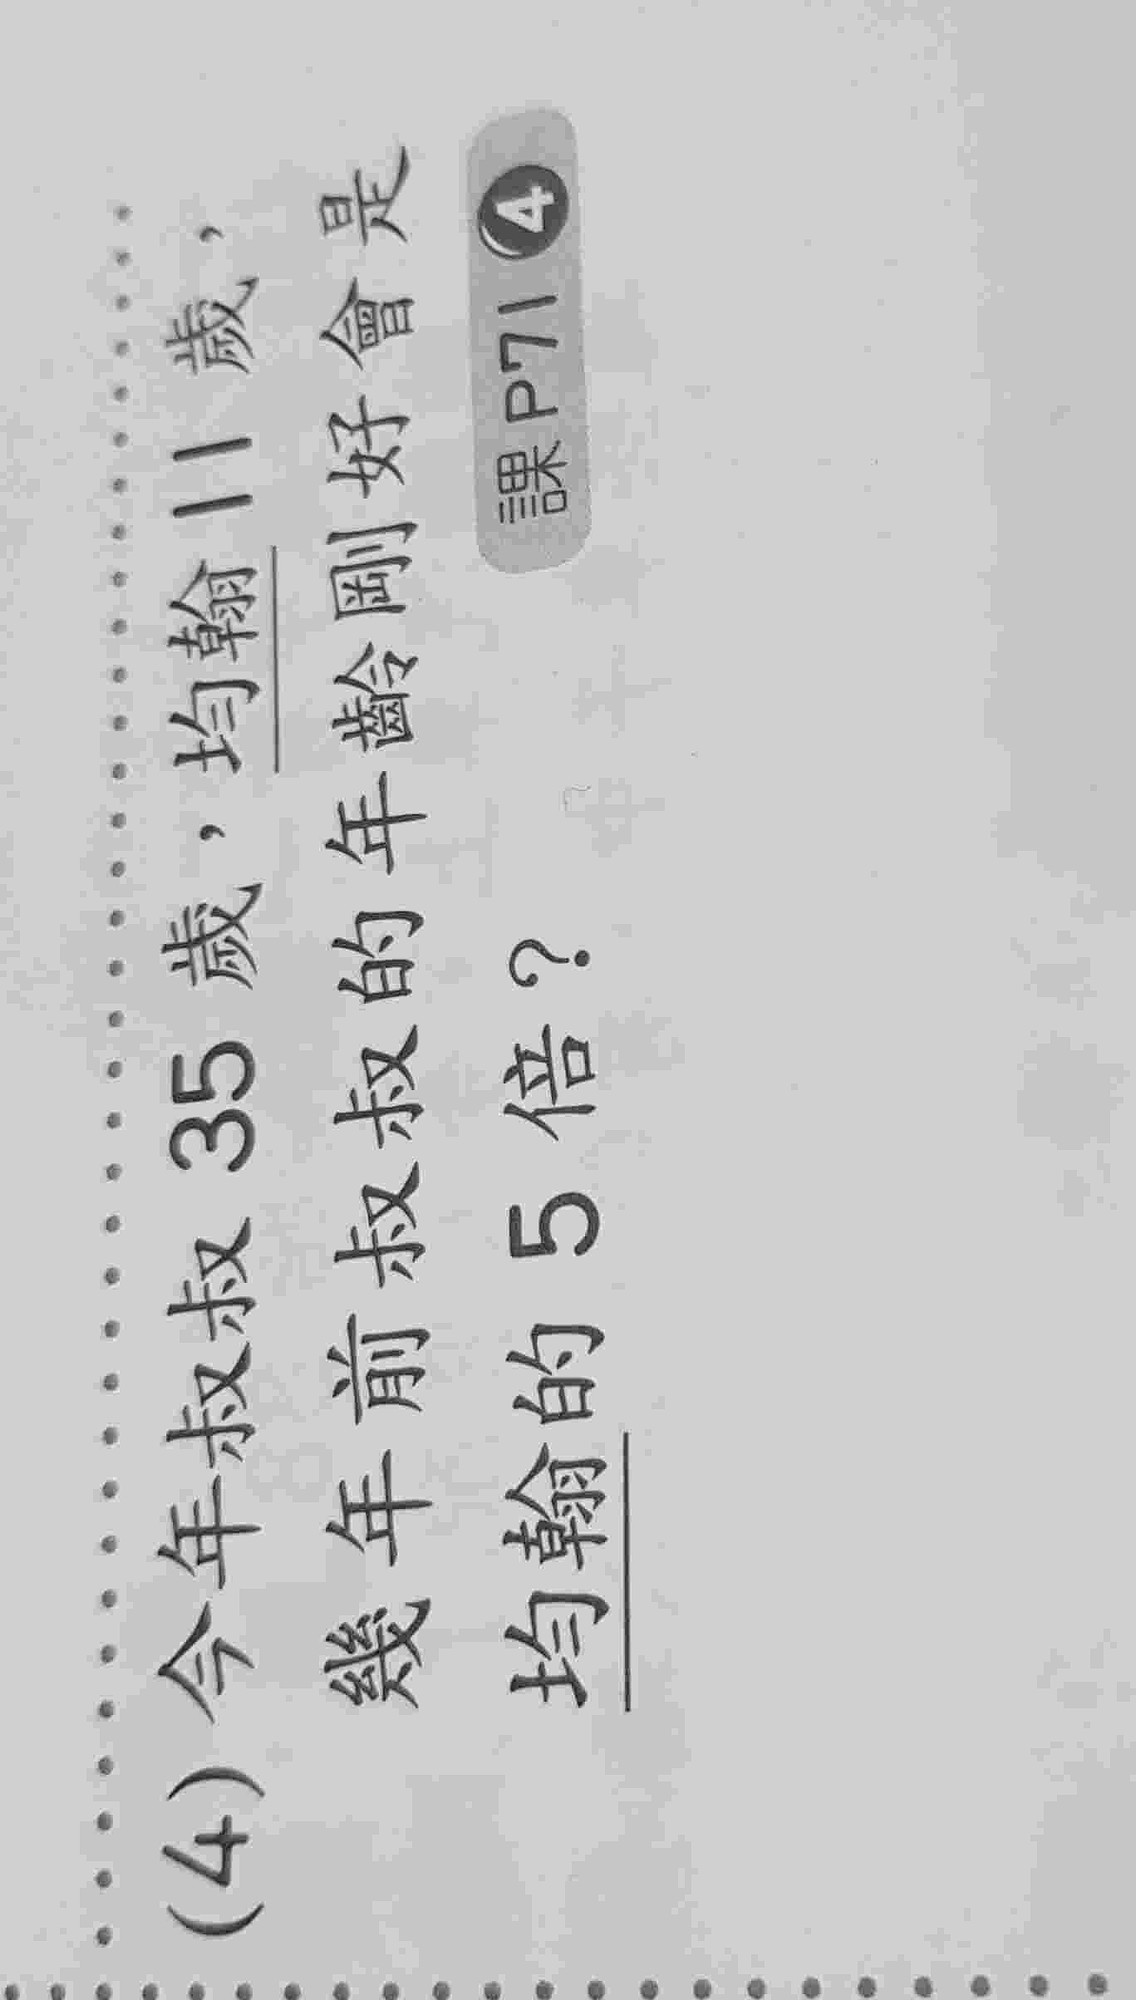 (4) 今年叔叔 35 歲，均翰 11 歲，
幾年前叔叔的年齡剛好會是
均翰的 5 倍？
課 P71 4